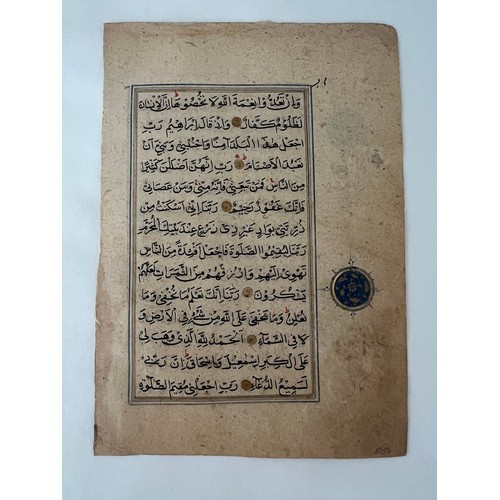 وَإِنْ تَعُدُّوا نِعْمَةَ اللَّهِ لَا تُحْصُوهَا إِنَّ الْإِنْسَانَ
لَظَلُومٌ كَفَّارٌ وَإِذْ قَالَ إِبْرَاهِيمُ رَبِّ
اجْعَلْ هَذَا الْبَلَدَ آمِنًا وَاجْنُبْنِي وَبَنِيَّ أَنْ
نَعْبُدَ الْأَصْنَامَ رَبِّ إِنَّهُنَّ أَضْلَلْنَ كَثِيرًا
مِنَ النَّاسِ فَمَنْ تَبِعَنِي فَإِنَّهُ مِنِّي وَمَنْ عَصَانِي
فَإِنَّكَ غَفُورٌ رَحِيمٌ رَبَّنَا إِنِّي أَسْكَنْتُ مِنْ
ذُرِّيَّتِي بِوَادٍ غَيْرِ ذِي زَرْعٍ عِنْدَ بَيْتِكَ الْمُحَرَّمِ
رَبَّنَا لِيُقِيمُوا الصَّلَوةَ فَاجْعَلْ أَفْئِدَةً مِنَ النَّاسِ
تَهْوِي إِلَيْهِمْ وَارْزُقْهُمْ مِنَ الثَّمَرَاتِ لَعَلَّهُمْ
يَشْكُرُونَ رَبَّنَا إِنَّكَ تَعْلَمُ مَا نُخْفِي وَمَا
نُعْلِنُ وَمَا يَخْفَى عَلَى اللَّهِ مِنْ شَيْءٍ فِي الْأَرْضِ وَ
لَا فِي السَّمَاءِ الْحَمْدُ لِلَّهِ الَّذِي وَهَبَ لِي
عَلَى الْكِبَرِ إِسْمَعِيلَ وَإِسْحَاقَ إِنَّ رَبِّي
لَسَمِيعُ الدُّعَاءِ رَبِّ اجْعَلْنِي مُقِيمَ الصَّلَوةِ